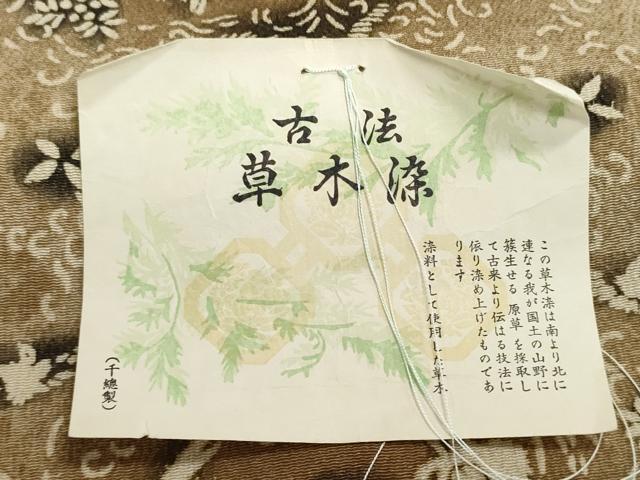 古法
草木染
この草木染は南より北に
連なる我が国土の山野に
簇生せる 原草 を採取し
て古来より伝はる技法に
依り染め上げたものであ
ります
染料として使用した草木
(千總製)